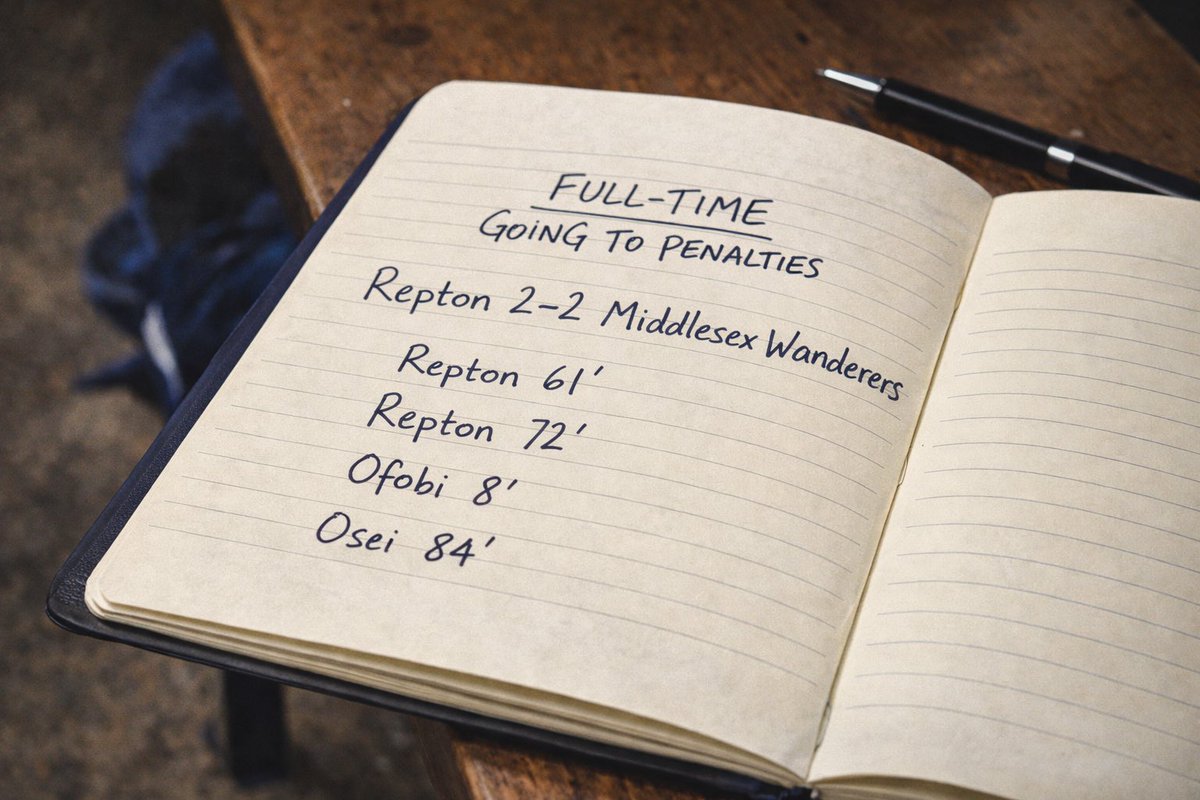 FULL-TIME
GOING TO PENALTIES
Repton 2-2 Middlesex Wanderers
Repton 61'
Repton 72'
Ofobi 8'
Osei 84'